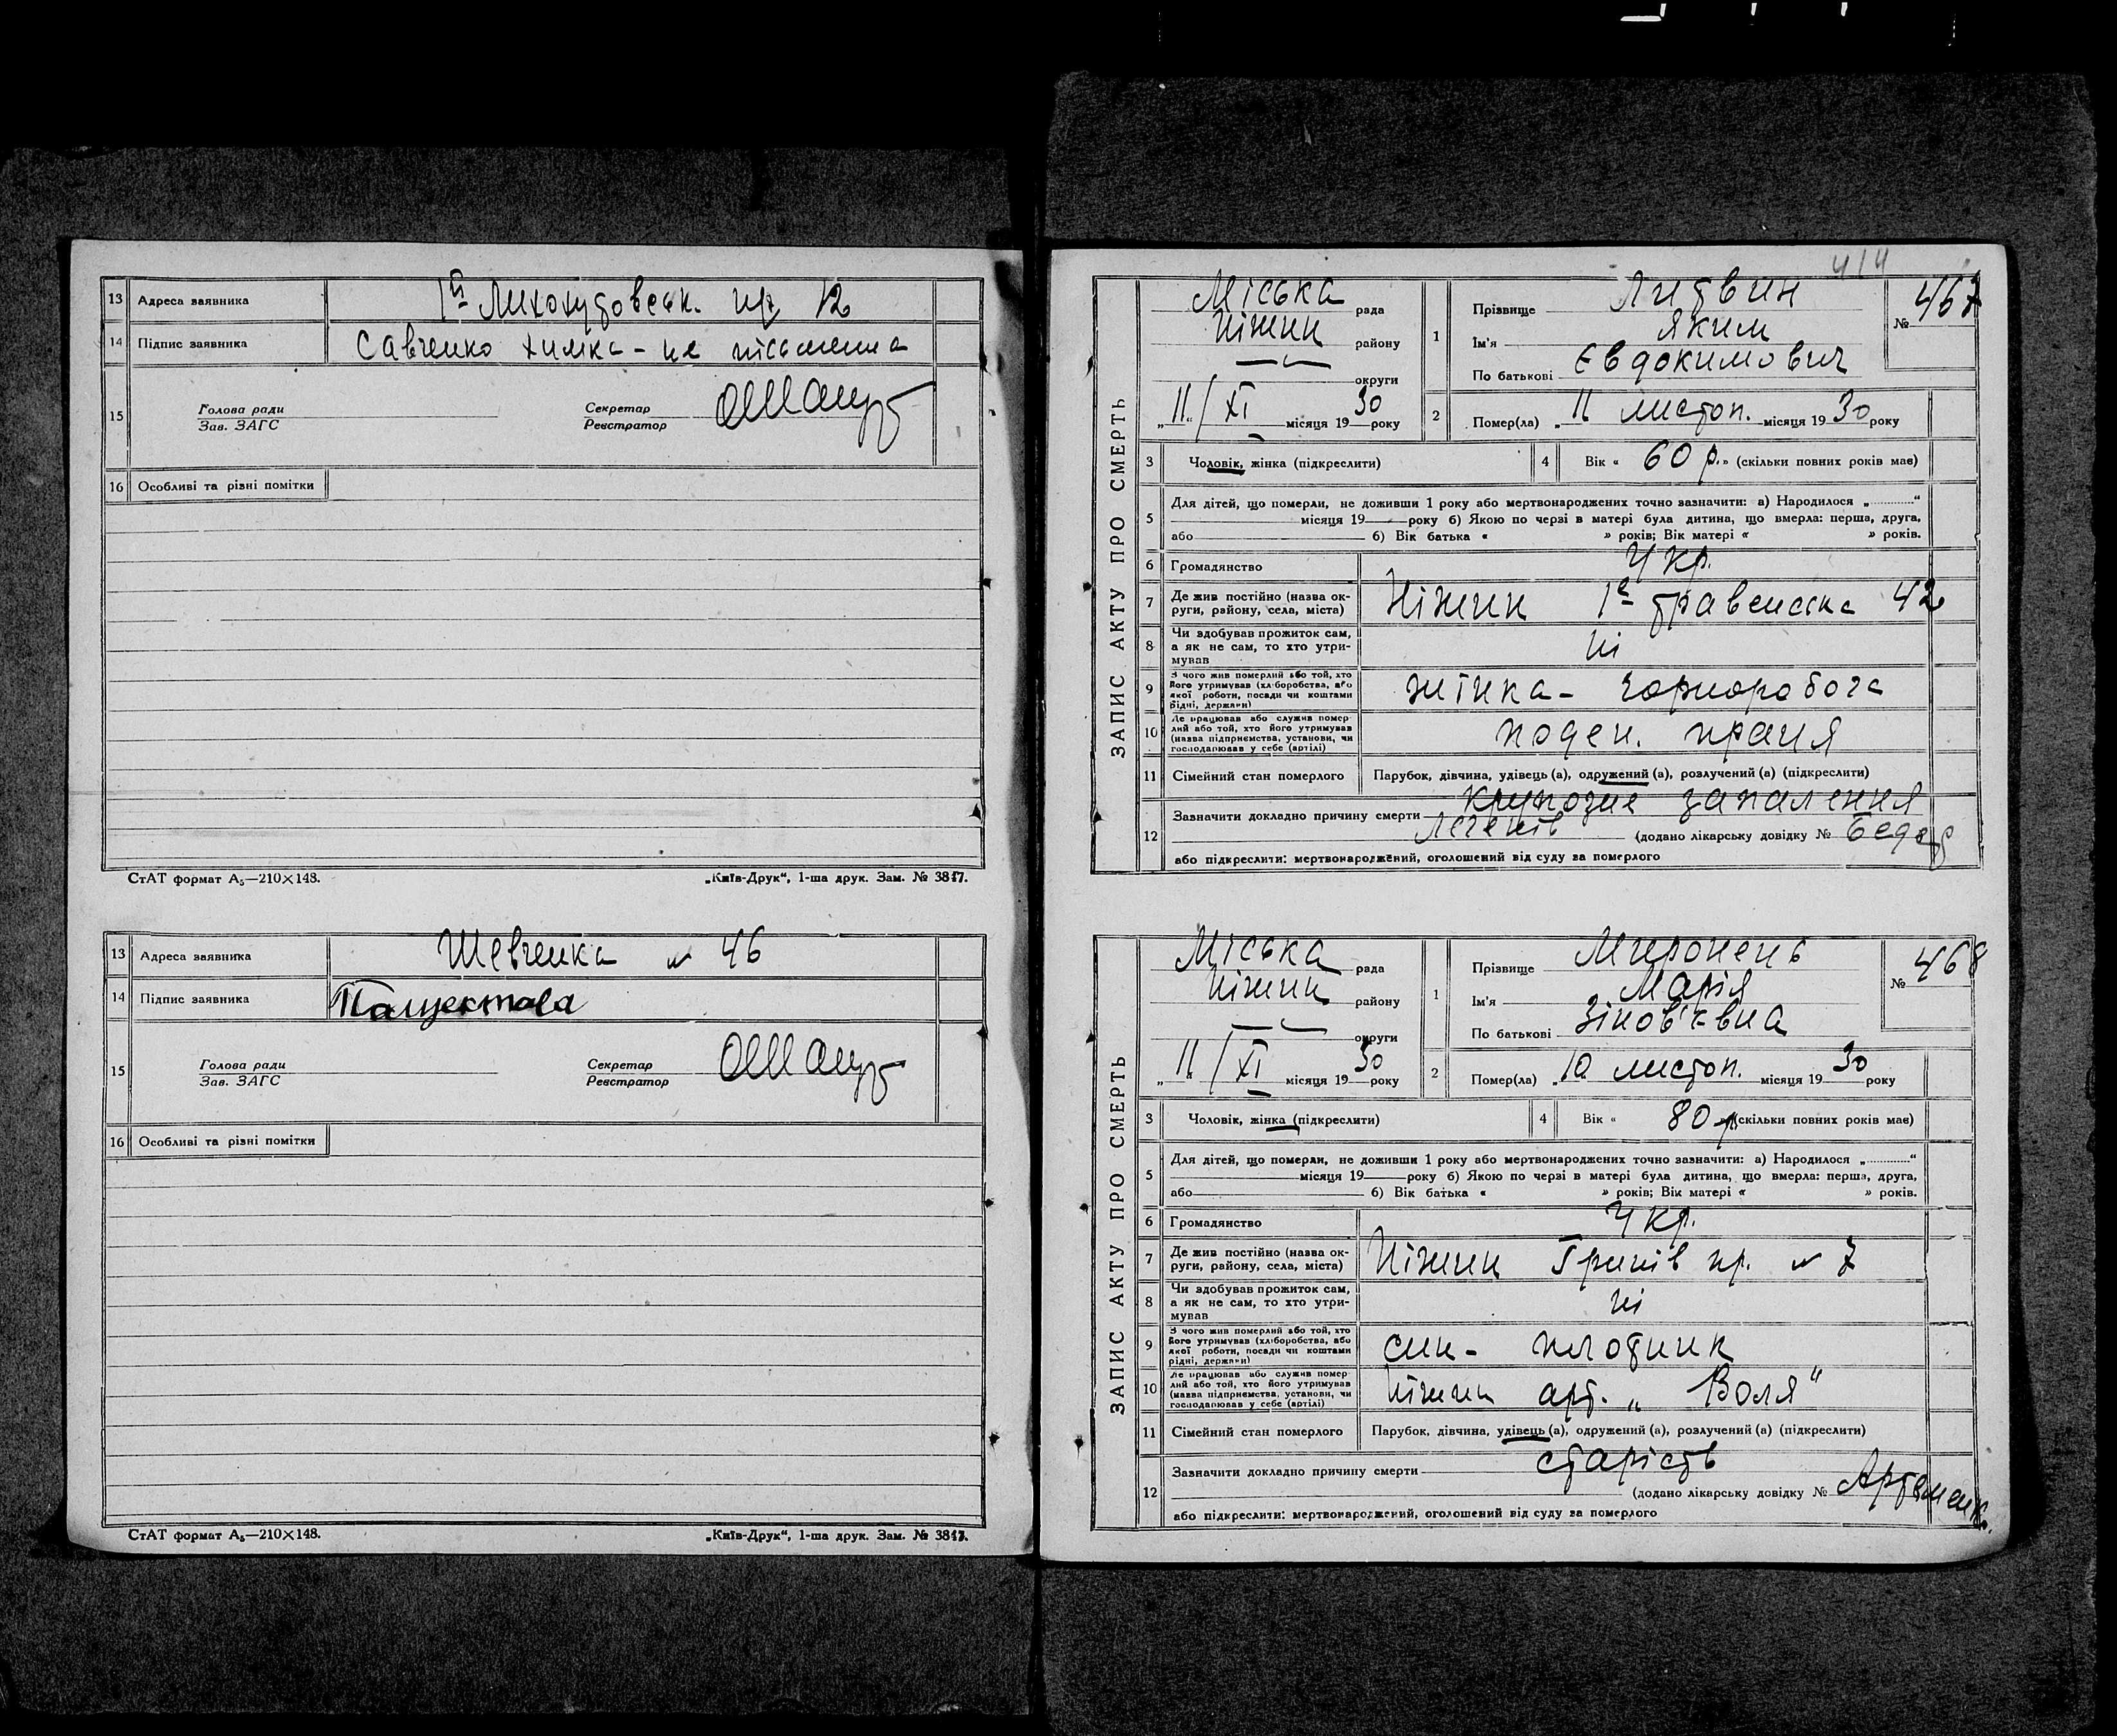 13 Адреса заявника 1й Лихохутовськ. пр 12
14 Підпис заявника Савченко Химка - не письменна
15 Голова ради Секретар
Зав. ЗАГС Реєстратор
16 Особливі та різні помітки
СтАТ формат А₅—210×148. „Київ-Друк“, 1-ша друк. Зам. № 3847.
13 Адреса заявника Шевченка № 46
14 Підпис заявника
15 Голова ради Секретар
Зав. ЗАГС Реєстратор
16 Особливі та різні помітки
СтАТ формат А₅—210×148. „Київ-Друк“, 1-ша друк. Зам. № 3847.
414
ЗАПИС АКТУ ПРО СМЕРТЬ
Міська рада
Ніжин району
округи
„11“/XI місяця 1930 року
1 Прізвище Литвин
Ім'я Яким
По батькові Євдокимович
№ 467
2 Помер(ла) „11 листоп. місяця 1930 року
3 Чоловік, жінка (підкреслити) 4 Вік « 60 р.» (скільки повних років має)
5 Для дітей, що померли, не доживши 1 року або мертвонароджених точно зазначити: а) Народилося „............“
місяця 19 року б) Якою по черзі в матері була дитина, що вмерла: перша, друга,
або б) Вік батька « » років; Вік матері « » років.
6 Громадянство Укр.
7 Де жив постійно (назва ок-
руги, району, села, міста) Ніжин 1е травенська 42
8 Чи здобував прожиток сам,
а як не сам, то хто утри-
мував ні
9 З чого жив померлий або той, хто
його утримував (хліборобства, або
якої роботи, посади чи коштами
рідні, держави) жінка - чорноробоча
10 Де працював або служив помер-
лий або той, хто його утримував
(назва підприємства, установи, чи
господарював у себе (артілі) поден. праця
11 Сімейний стан померлого Парубок, дівчина, удівець (а), одружений (а), розлучений (а) (підкреслити)
12 Зазначити докладно причину смерти крупозне запалення
легенів (додано лікарську довідку №
або підкреслити: мертвонароджений, оголошений від суду за померлого
ЗАПИС АКТУ ПРО СМЕРТЬ
Міська рада
Ніжин району
округи
„11“/XI місяця 1930 року
1 Прізвище Миронець
Ім'я Марія
По батькові Зінов'євна
№ 468
2 Помер(ла) „10 листоп. місяця 1930 року
3 Чоловік, жінка (підкреслити) 4 Вік « 80 р (скільки повних років має)
5 Для дітей, що померли, не доживши 1 року або мертвонароджених точно зазначити: а) Народилося „............“
місяця 19 року б) Якою по черзі в матері була дитина, що вмерла: перша, друга,
або б) Вік батька « » років; Вік матері « » років.
6 Громадянство Укр.
7 Де жив постійно (назва ок-
руги, району, села, міста) Ніжин Гринів пр. № 7
8 Чи здобував прожиток сам,
а як не сам, то хто утри-
мував ні
9 З чого жив померлий або той, хто
його утримував (хліборобства, або
якої роботи, посади чи коштами
рідні, держави) син - плотник
10 Де працював або служив помер-
лий або той, хто його утримував
(назва підприємства, установи, чи
господарював у себе (артілі) Ніжин арт. „Воля“
11 Сімейний стан померлого Парубок, дівчина, удівець (а), одружений (а), розлучений (а) (підкреслити)
12 Зазначити докладно причину смерти старість
(додано лікарську довідку № Артеменк.
або підкреслити: мертвонароджений, оголошений від суду за померлого